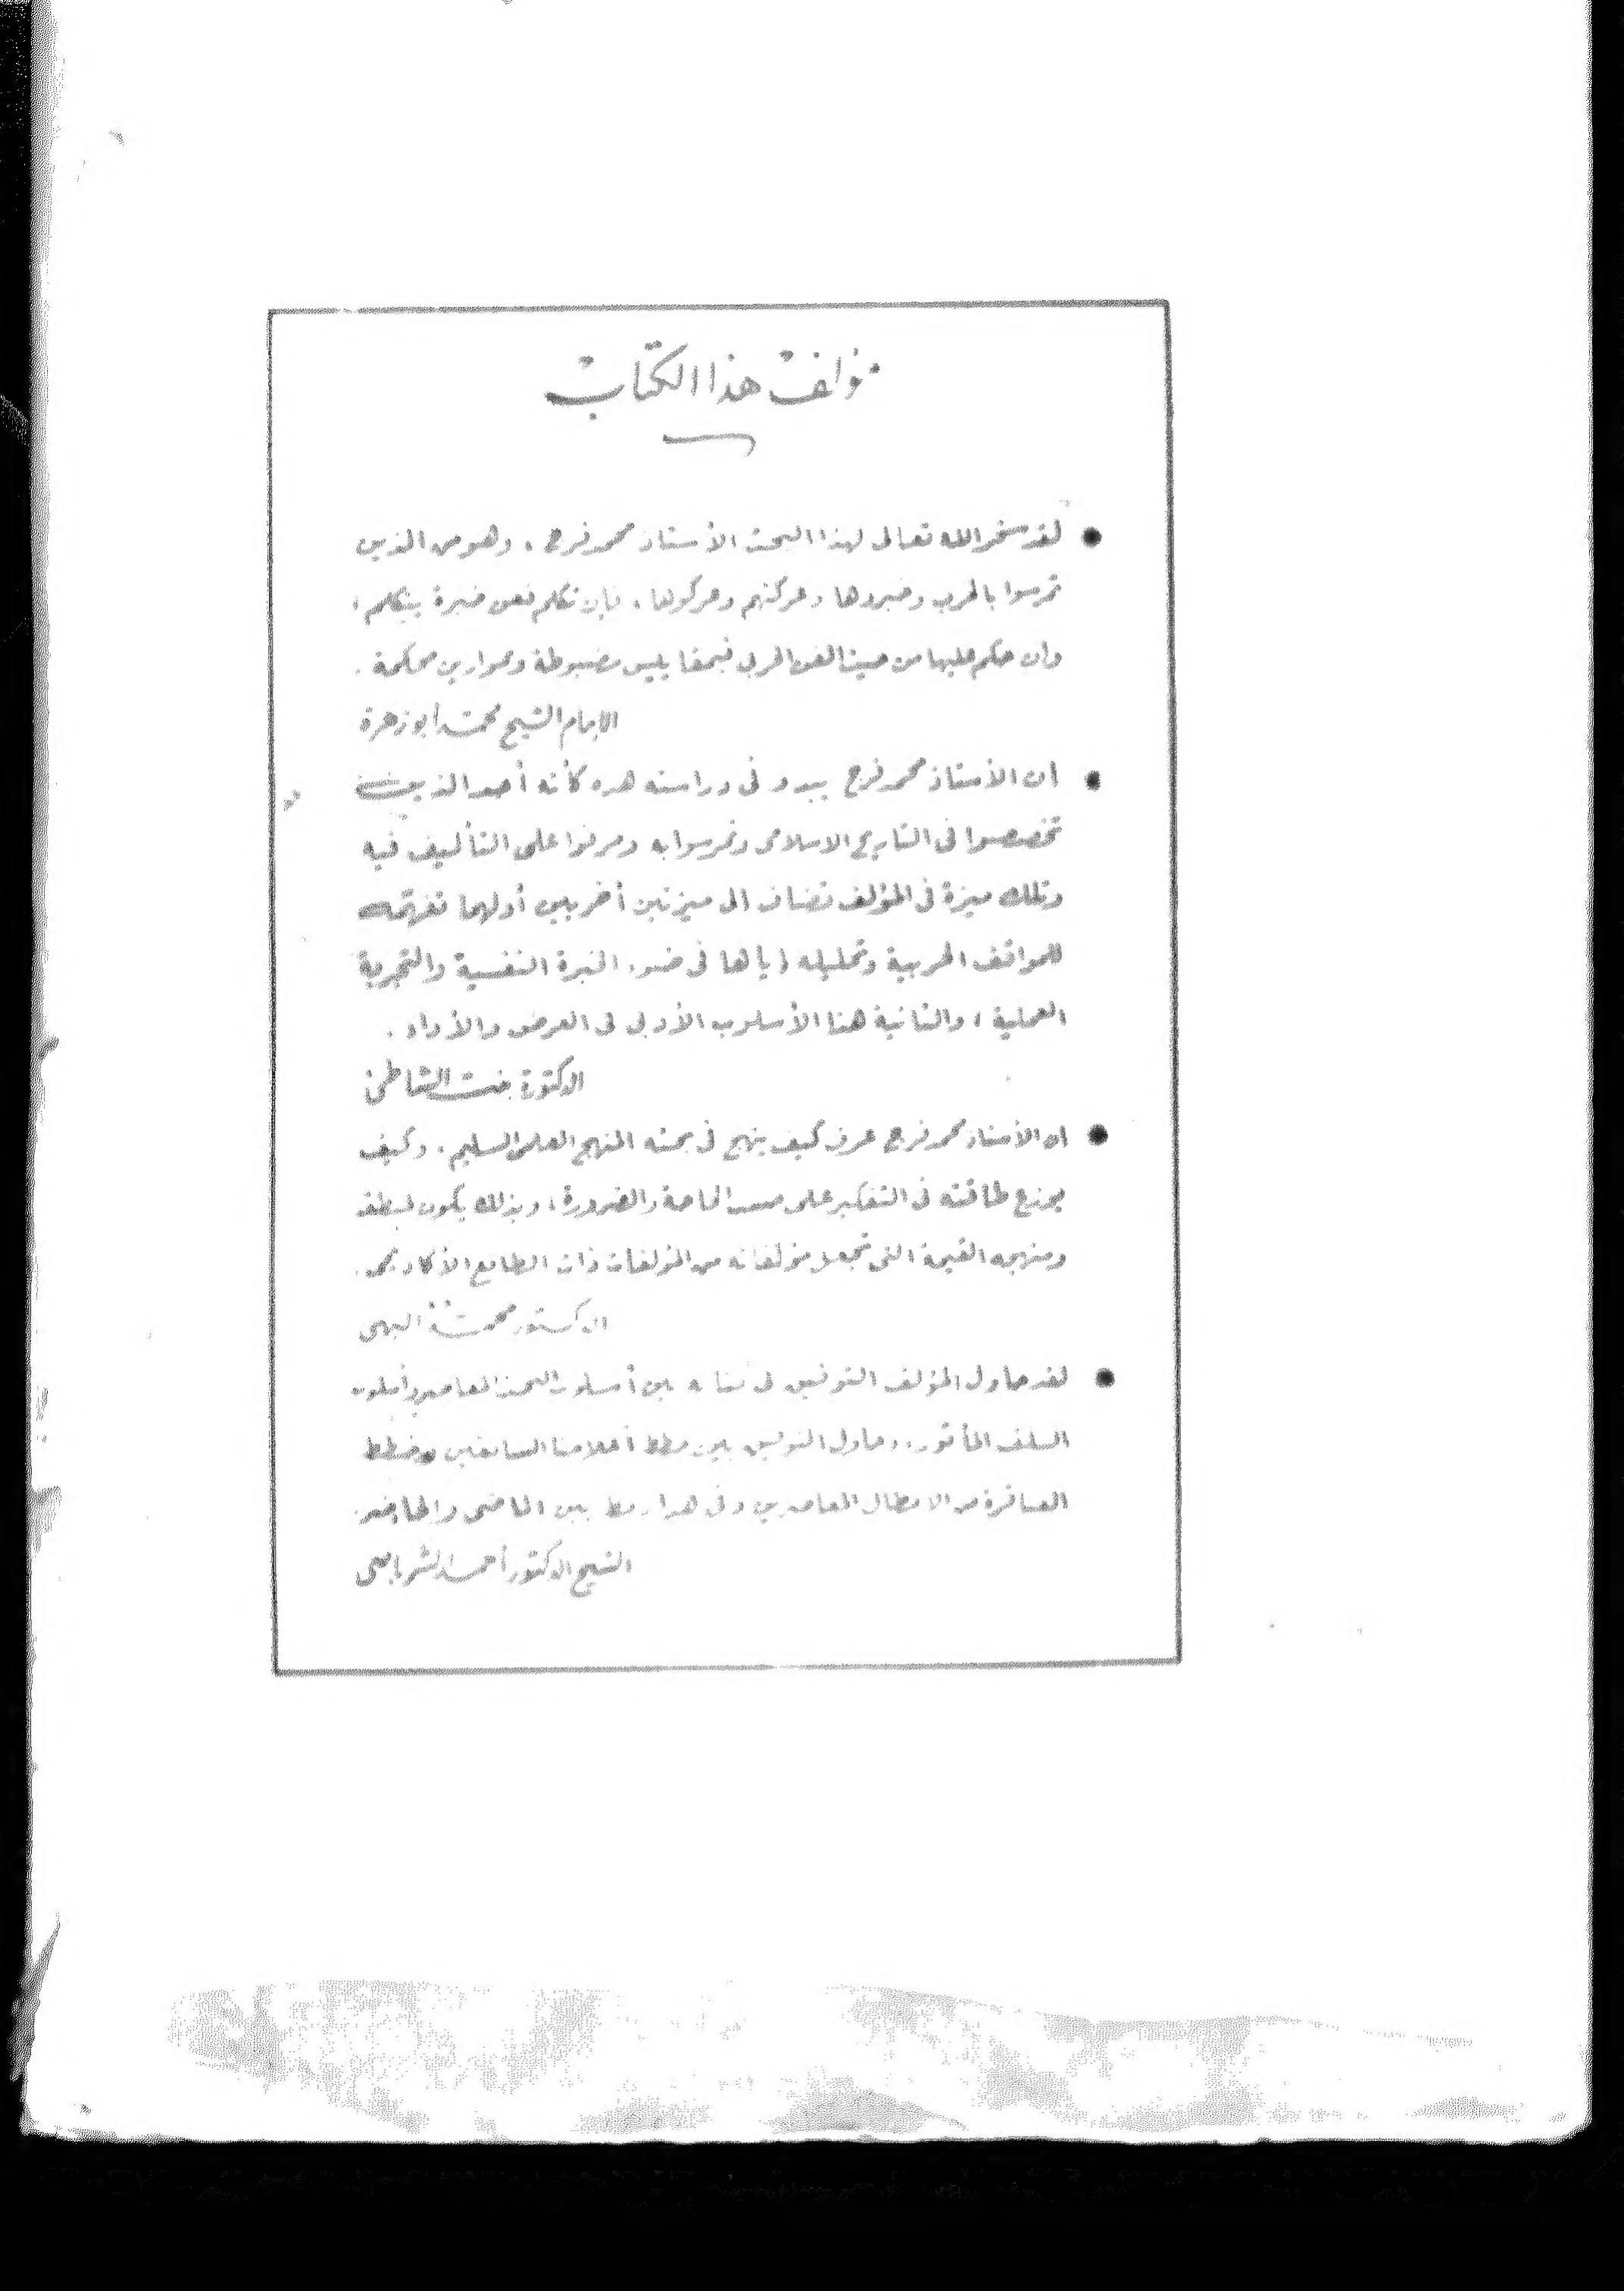 مؤلف هذا الكتاب
● لقد سخر الله تعالى لهذا البحث الأستاذ محمد فرج ، وهو من الذين
تمرسوا بالحرب وخبروها وعركتهم وعركوها ، فإن تكلم فعن خبرة يتكلم ،
وان حكم عليها من حيث الفن الحربى فبمقاييس مضبوطة وموازين محكمة .
الامام الشيخ محمد أبو زهرة
● ان الأستاذ محمد فرج يبدو فى دراسته هذه كأنه أحد الذين
تخصصوا فى التاريخ الاسلامى وتمرسوا به ومرنوا على التأليف فيه
وتلك ميزة فى المؤلف تضاف الى ميزتين أخريين أولهما تفهمه
للمواقف الحربية وتحليله إياها فى ضوء الخبرة النفسية والتجربة
العملية ، والثانية هنا الأسلوب الأدبى فى العرض والأداء .
الدكتورة بنت الشاطئ
● ان الأستاذ محمد فرج عرف كيف ينهج فى بحثه المنهج العلمى السليم ، وكيف
يوزع طاقته فى التفكير على حسب الحاجة والضرورة ، وبذلك يكون
ومنهجه القيمة التى تجعل مؤلفاته من المؤلفات ذات الطابع الأكاديمى .
الدكتور محمد البهى
● لقد حاول المؤلف التوفيق فى كتابه بين أسلوب البحث المعاصر وأسلوب
السلف المأثور ، وحاول التوفيق بين خطط أعلامنا السابقين وخطط
العباقرة من الابطال المعاصرين وفى هذا ربط بين الماضى والحاضر .
الشيخ الدكتور أحمد الشرباصى